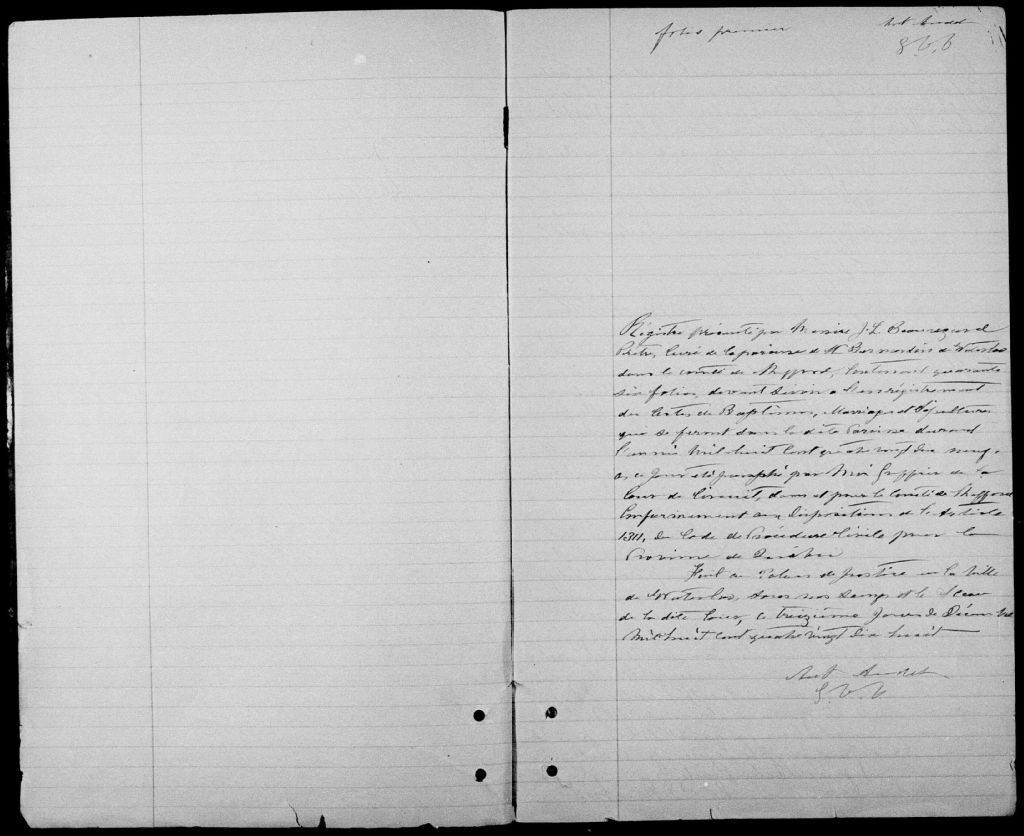 folio premier
Ant Audet
G. C. C
Régistre présenté par Messire J. L. Beauregard
Prêtre, Curé de la paroisse de St Bernardin de Waterloo
dans le comté de Shefford, Contenant quarante
six folios, devant servir a l'enrégistrement
des Actes de Baptêmes, Marriages et Sépultures
qui se feront dans la dite Paroisse durant
l'année Mil huit Cent quatre vingt dix neuf,
a, ce jour été paraphé par Moi Greffier de la
Cour de Circuit, dans et pour le Comté de Shefford
Conformément aux Dispositions de l'Article
1311, du Code de Procédure Civile pour la
Province de Québec
Fait au Palais de justice en la Ville
de Waterloo, sous nos Seings et le Sceau
de la dite Cour, ce treizième Jour de Décembre
Mil huit Cent quatre vingt dix huit
Ant Audet
G. C. C.